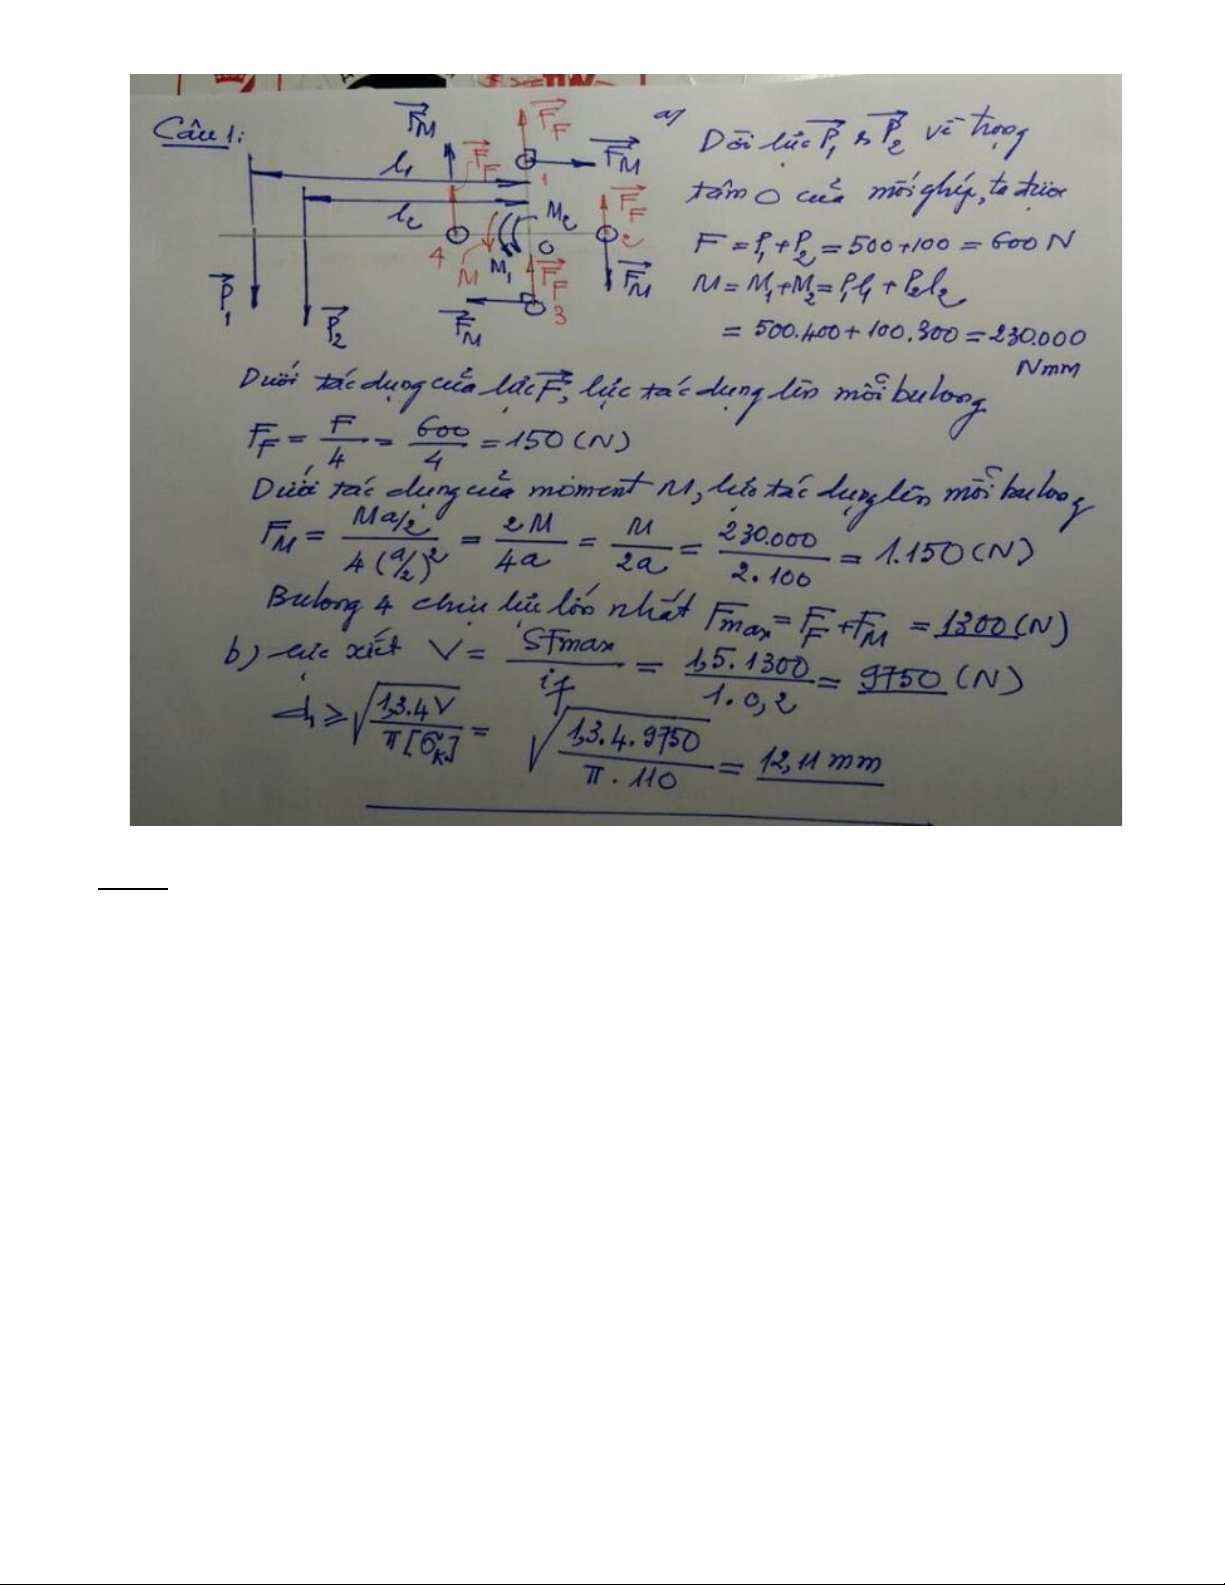 Câu 1:
F⃗M
F⃗F
F⃗F
F⃗M
l1
1
l2
M2
F⃗F
4
M
M1
O
2
F⃗M
P⃗1
P⃗2
F⃗M
F⃗F
3
a)
Dời lực P⃗1 & P⃗2 về trọng
tâm O của mối ghép, ta được
F = P1 + P2 = 500 + 100 = 600 N
M = M1 + M2 = P1l1 + P2l2
= 500.400 + 100.300 = 230.000
Nmm
Dưới tác dụng của lực F⃗, lực tác dụng lên mỗi bulong
FF = F/4 = 600/4 = 150 (N)
Dưới tác dụng của moment M, lực tác dụng lên mỗi bulong
FM = (M a/2)/(4 (a/2)²) = 2M/4a = M/2a = 230.000/2.100 = 1.150 (N)
Bulong 4 chịu lực lớn nhất Fmax = FF + FM = 1300 (N)
b) Lực xiết V = SFmax/if = 1,5.1300/1.0,2 = 9750 (N)
d1 ≥ √(1,3.4V/π[σK]) = √(1,3.4.9750/π.110) = 12,11 mm